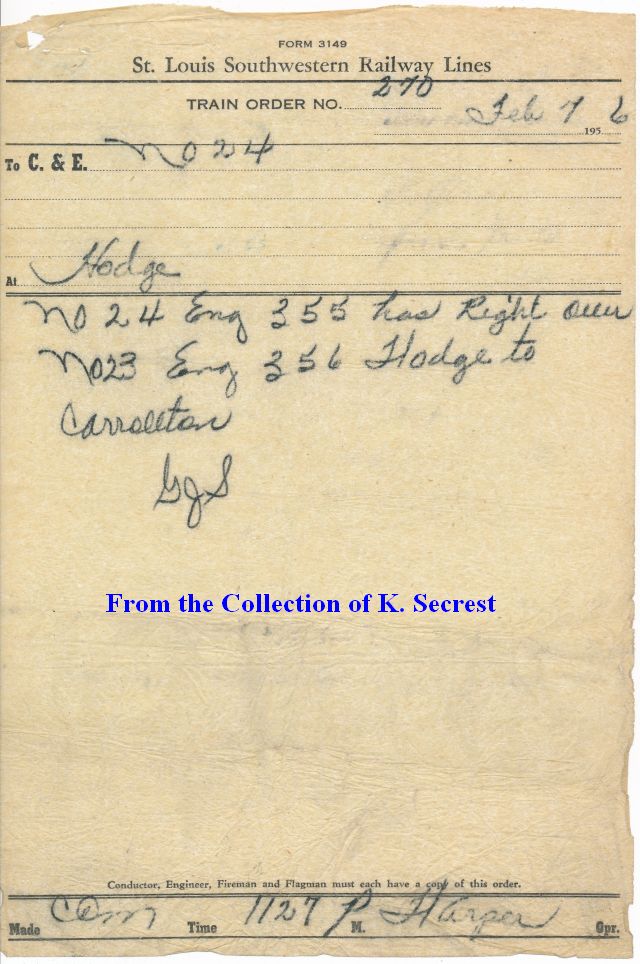 FORM 3149
St. Louis Southwestern Railway Lines
TRAIN ORDER NO. 270
Feb 7 1956
To C. & E. No 24
At Hodge
No 24 Eng 355 has Right over
No 23 Eng 356 Hodge to
Carrollton
GJS
From the Collection of K. Secrest
Conductor, Engineer, Fireman and Flagman must each have a copy of this order.
Made Com Time 1127 P M. Harper Opr.